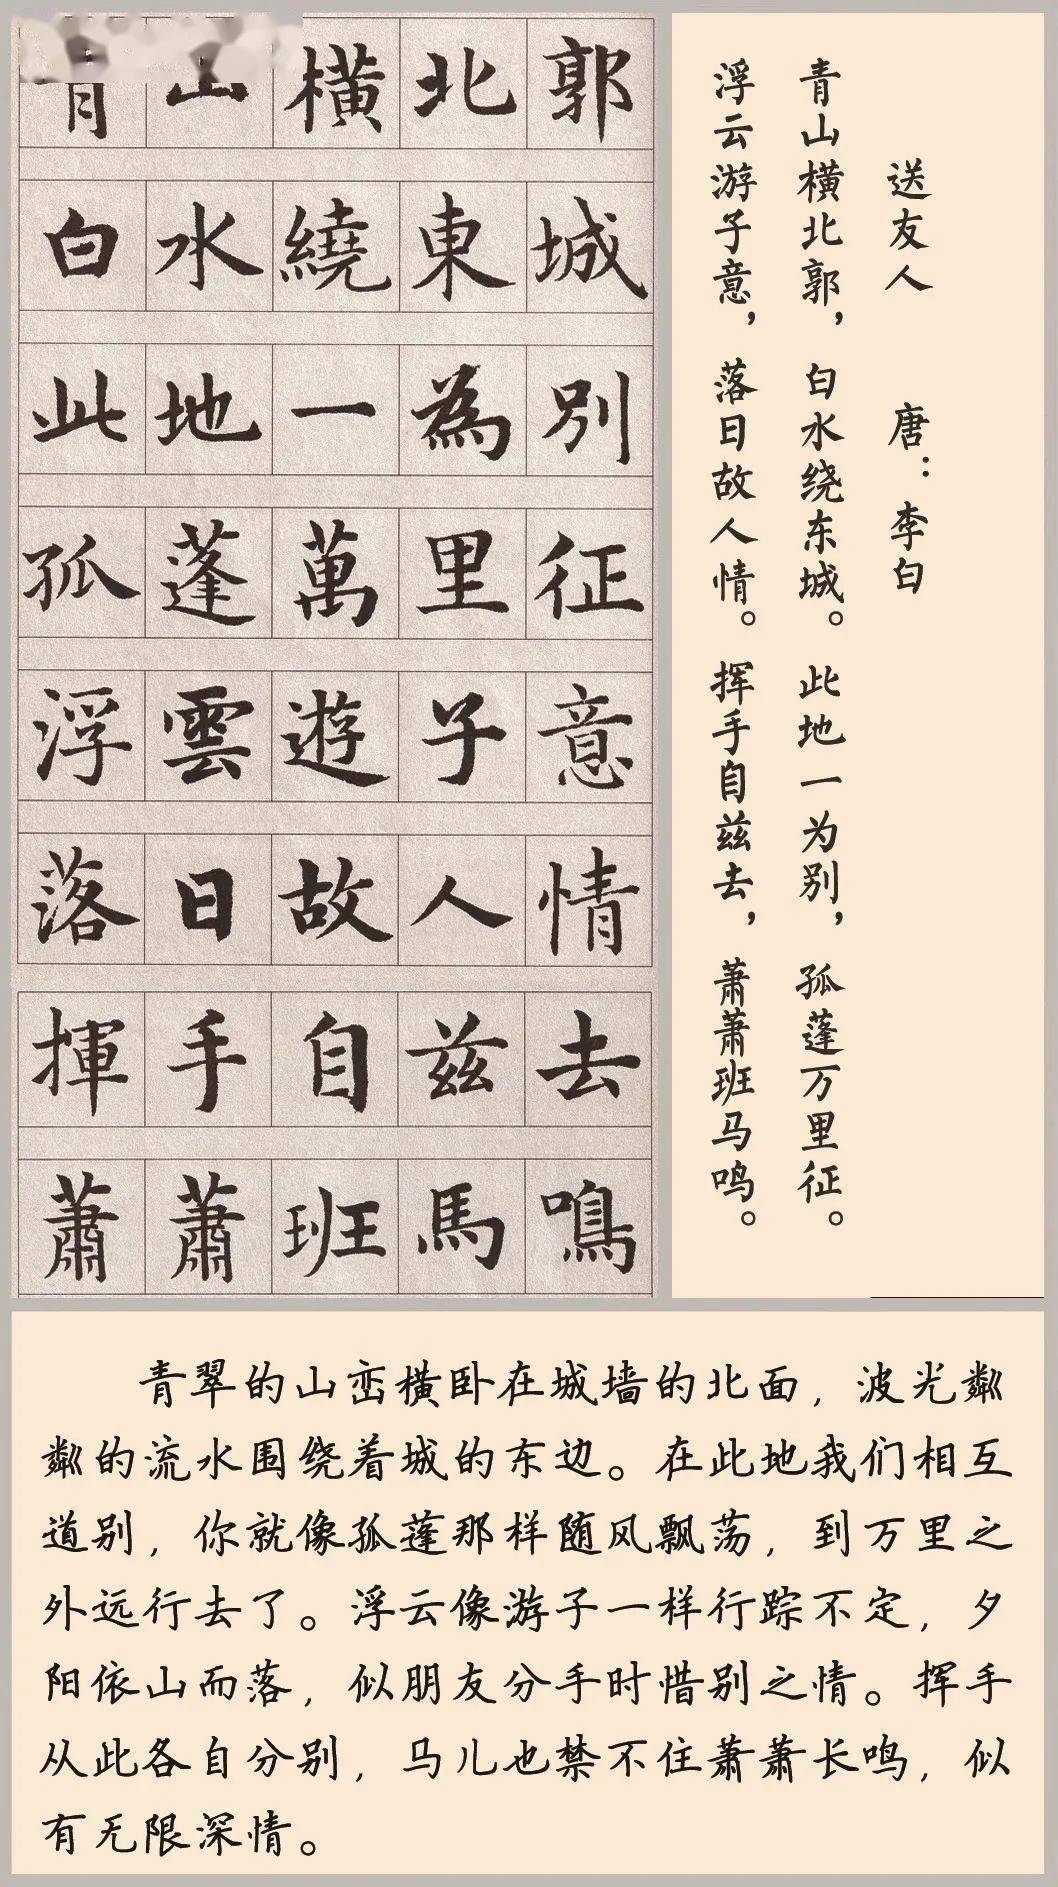 青山橫北郭
白水繞東城
此地一為別
孤蓬萬里征
浮雲遊子意
落日故人情
揮手自兹去
蕭蕭班馬鳴
送友人 唐：李白
青山横北郭，白水绕东城。此地一为别，孤蓬万里征。
浮云游子意，落日故人情。挥手自兹去，萧萧班马鸣。
青翠的山峦横卧在城墙的北面，波光粼
粼的流水围绕着城的东边。在此地我们相互
道别，你就像孤蓬那样随风飘荡，到万里之
外远行去了。浮云像游子一样行踪不定，夕
阳依山而落，似朋友分手时惜别之情。挥手
从此各自分别，马儿也禁不住萧萧长鸣，似
有无限深情。